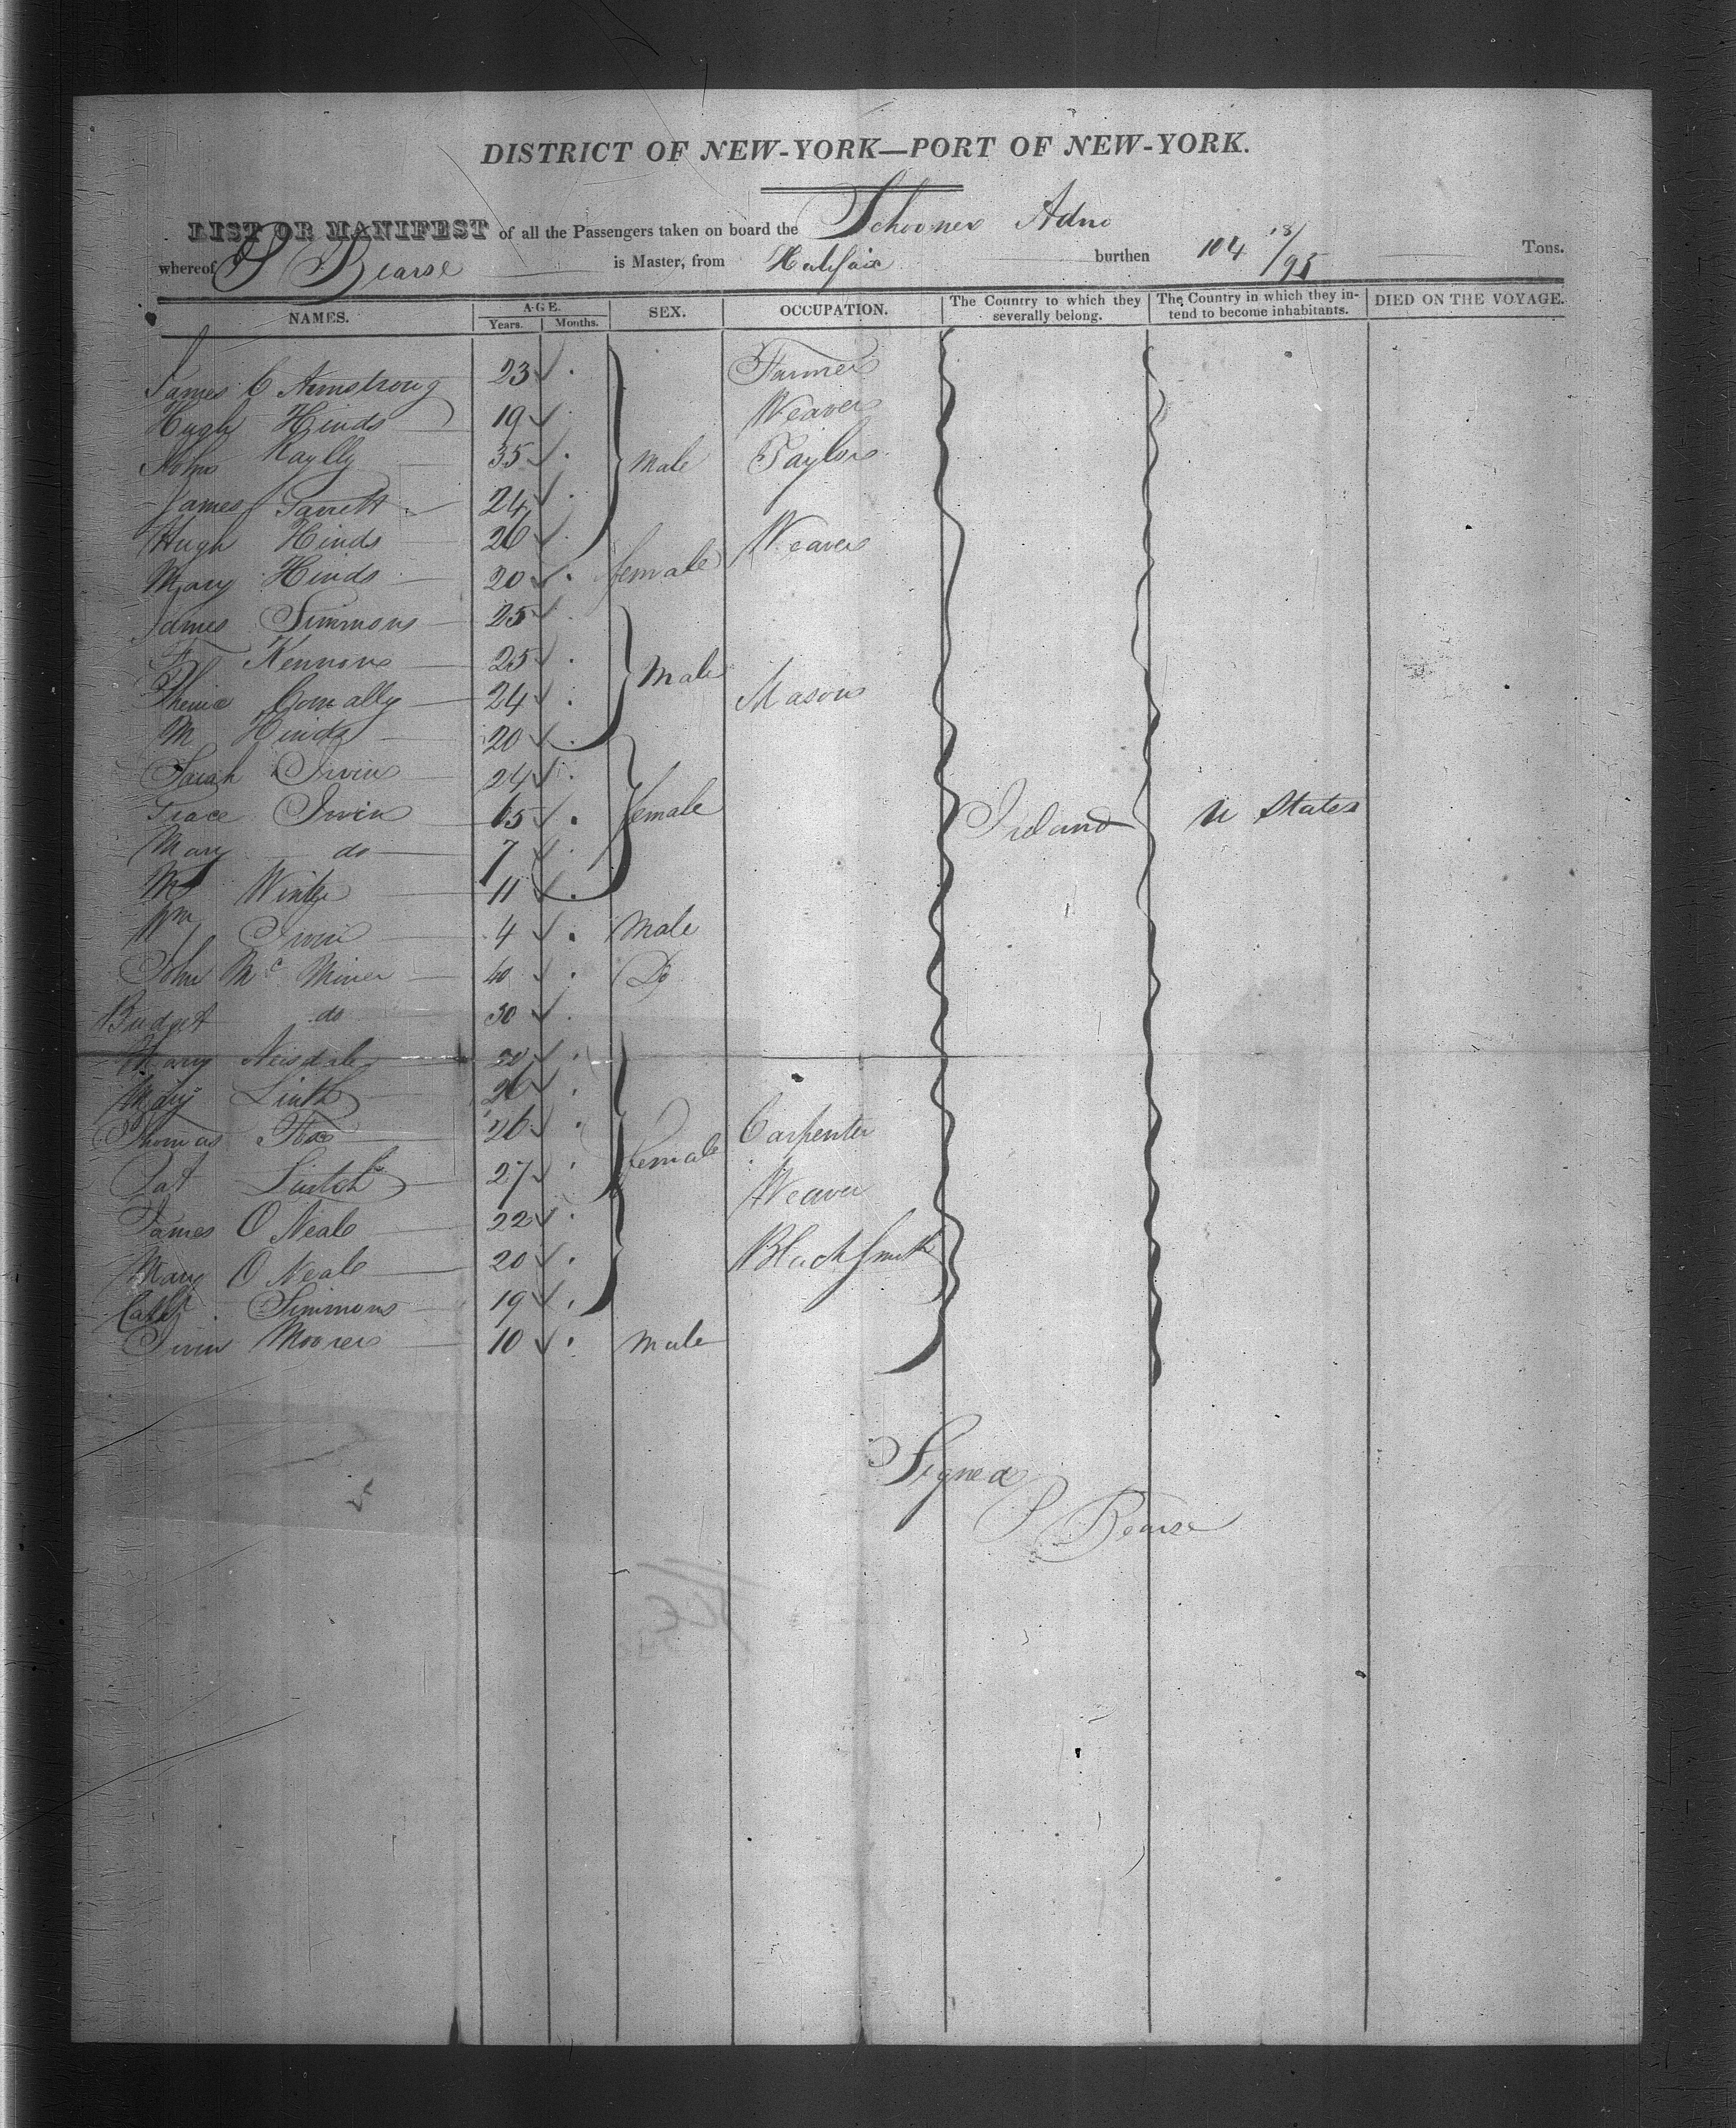 DISTRICT OF NEW-YORK—PORT OF NEW-YORK.
LIST OR MANIFEST of all the Passengers taken on board the Schooner Adno
whereof P Bearse is Master, from Halifax burthen 104 18/95 Tons.
NAMES. AGE. Years. Months. SEX. OCCUPATION. The Country to which they severally belong. The Country in which they intend to become inhabitants. DIED ON THE VOYAGE.
James C Armstrong 23 Farmer
Hugh Hinds 19 Weaver
John 35 male Taylor
James 24
Hugh Hinds 26 Weaver
Mary Hinds 20 female
James Simmons 25
Kennon 25 Male
Conally 24 Mason
M Hinds 20
Sarah Irvin 24
Irvin 15 female Ireland U States
Mary do 7
11
Wm Irvin 4 Male
John Mc Miner 40 Do
Bridget do 30
Mary
Mary 26
Thomas 26 Carpenter
Pat 27 female Weaver
James O Neale 22
Mary O Neale 20 Black Smith
Simmons 19
Irvin Moorer 10 male
Signed
P Bearse